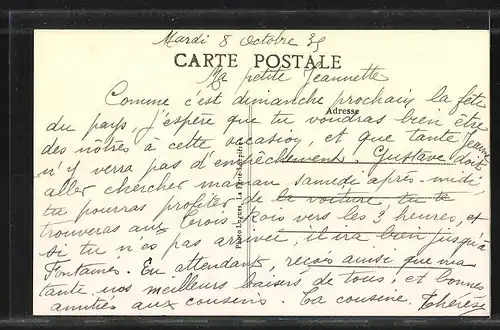 Mardi 8 Octobre 35
CARTE POSTALE
Ma petite Jeannette
Adresse
Comme c'est dimanche prochain la fête
du pays, j'espère que tu voudras bien être
des nôtres à cette occasion, et que tante Jeanne
n'y verra pas d'empêchement. Gustave doit
aller chercher maman samedi après-midi
tu pourras profiter de la voiture, tu te
trouveras aux Trois Rois vers les 3 heures, et
si tu n'es pas arrivée, il ira bien jusqu'à
Fontaines. En attendant, reçois ainsi que ma
tante nos meilleurs baisers de tous, et bonnes
amitiés aux cousins. Ta cousine. Thérèse